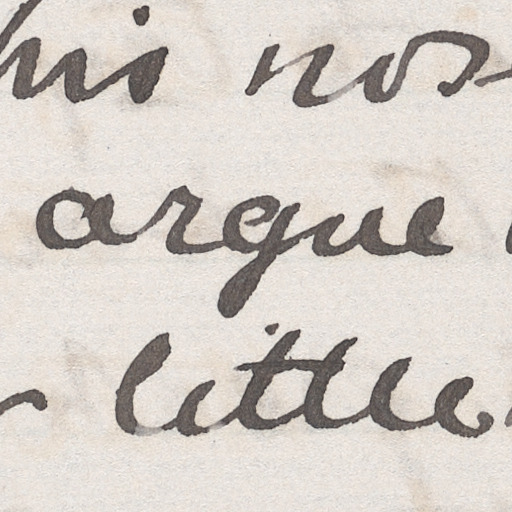 his nos
argue
little